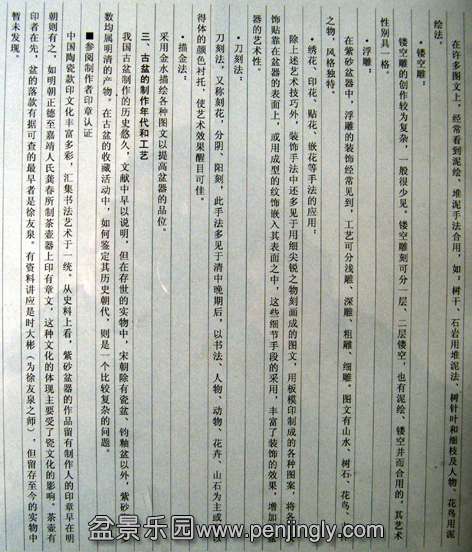 在许多图文上，经常看到泥绘、堆泥手法合用，如：树干、石岩用堆泥法，树针叶和细枝及人物、花鸟用泥
绘法。
·镂空雕：
镂空雕的创作较为复杂，一般很少见。镂空雕刻可分一层、二层镂空，也有泥绘、镂空并而合用的，其艺术
性别具一格。
·浮雕：
在紫砂盆器中，浮雕的装饰经常见到，工艺可分浅雕、深雕、粗雕、细雕。图文有山水、树石、花鸟、
之物，风格独特。
·绣花、印花、贴花、嵌花等手法的应用：
除上述艺术技巧外，装饰手法中还多见于用细尖锐之物刻画成的图文，用板模印制成的各种图案，将各
饰贴靠在盆器的表面上，或用成型的纹饰嵌入其表面之中，这些细节手段的采用，丰富了装饰的效果，增加
器的艺术性。
·刀刻法：
刀刻法，又称刻花，分阴、阳刻，此手法多见于清中晚期后，以书法、人物、动物、花卉、山石为主或以
得体的颜色衬托，使艺术效果醒目可佳。
·描金法：
采用金水描绘各种图文以提高盆器的品位。
三、古盆的制作年代和工艺
我国古盆制作的历史悠久，文献中早以说明，但在存世的实物中，宋朝除有瓷盆、钧釉盆以外，紫砂
数均属明清的产物。在古盆的收藏活动中，如何鉴定其历史朝代，则是一个比较复杂的问题。
■参阅制作者印章认证
中国陶瓷款印文化丰富多彩，汇集书法艺术于一统。从史料上看，紫砂盆器的作品留有制作人的印章早在明
朝则有之，如明朝正德至嘉靖人氏龚春所制茶壶器上印有章文，这种文化的体现主要受了瓷文化的影响，茶壶有
印者在先，盆的落款有据可查的最早者是徐友泉。有资料讲应是时大彬（为徐友泉之师），但留存至今的实物中
暂未发现。
盆景乐园www.penjingly.com